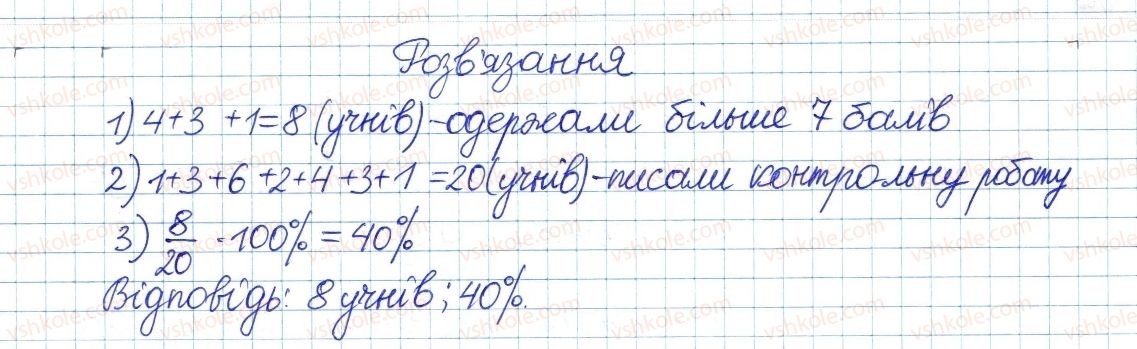 Розв'язання
1) 4+3+1=8 (учнів) - одержали більше 7 балів
2) 1+3+6+2+4+3+1=20 (учнів) - писали контрольну роботу
3) 8/20 · 100% = 40%
Відповідь: 8 учнів; 40%.